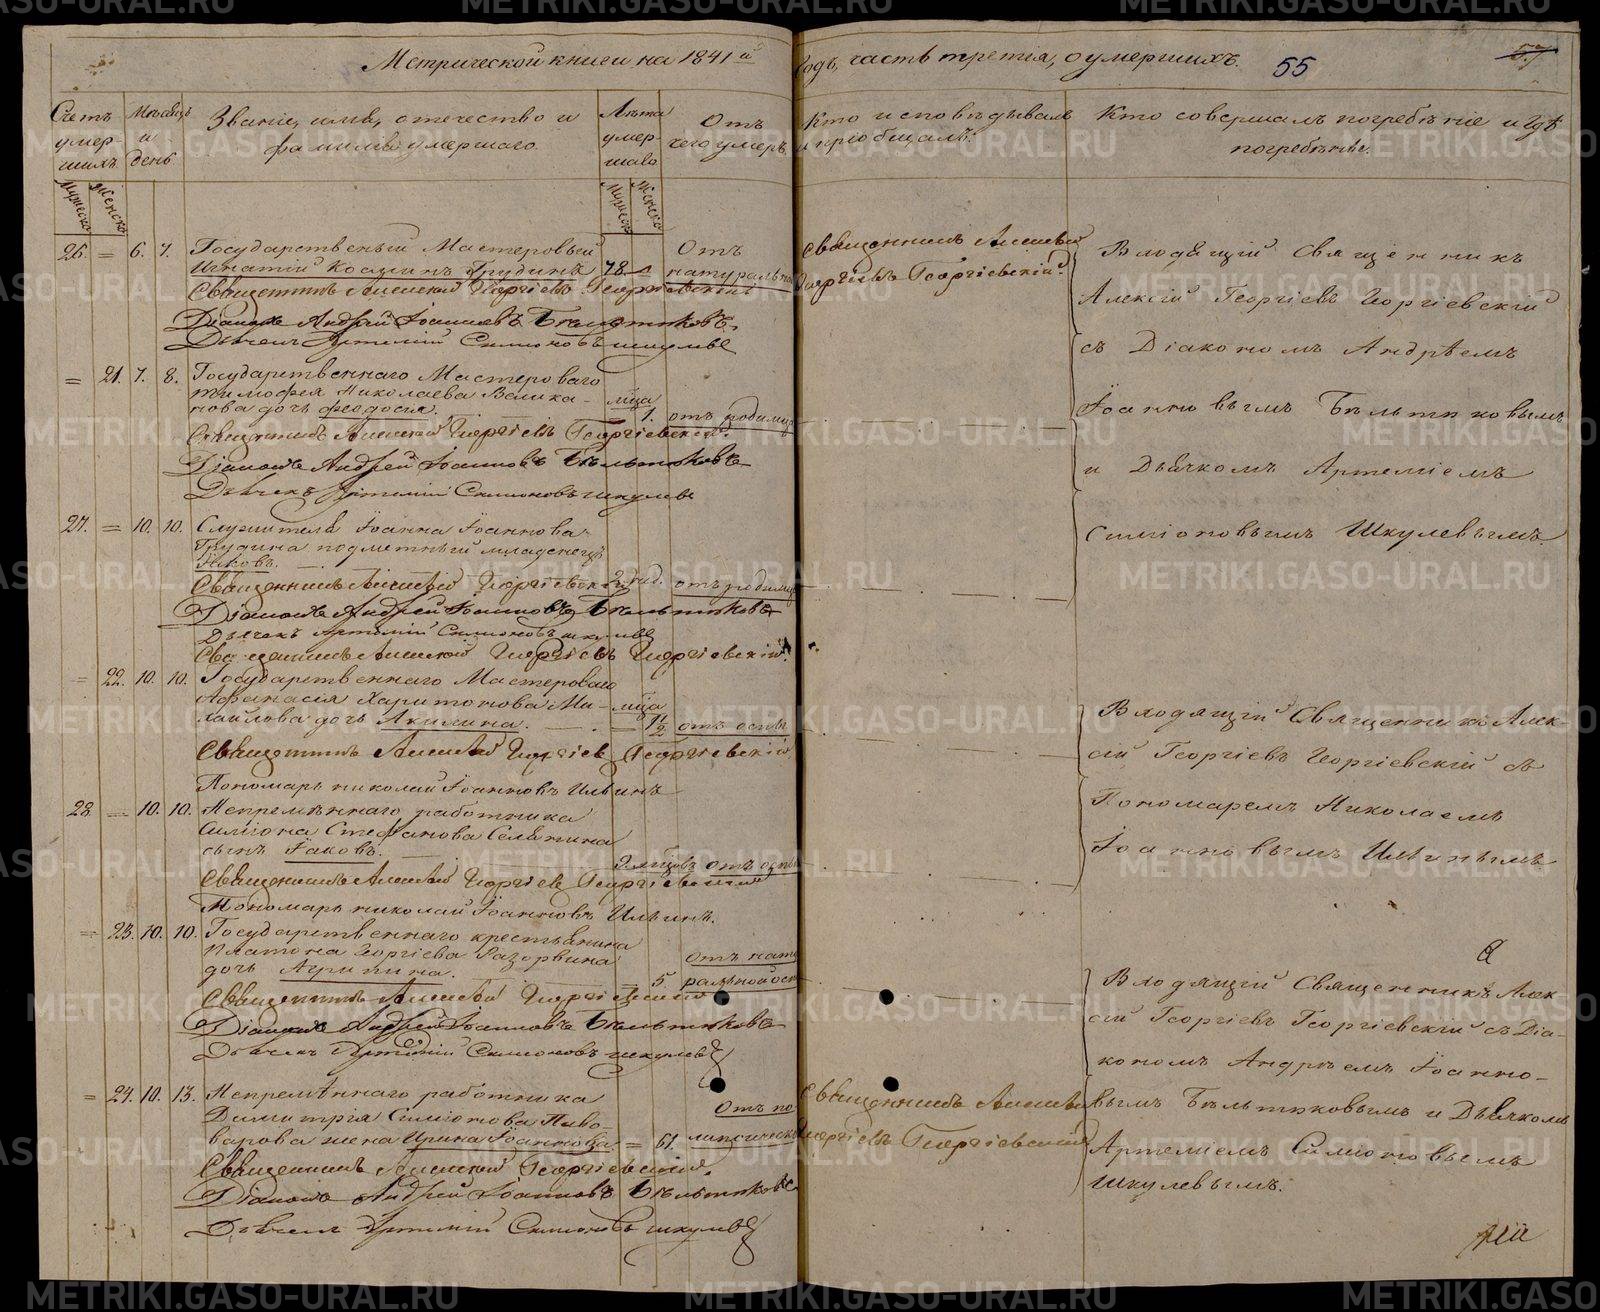 Метрической книги на 1841й
годъ, часть третія, о умершихъ.
55
57
Счетъ умер-шихъ
Мужеска
Женска
Мѣсяцъ и день
Званіе, имя, отечество и
фамилія умершаго.
Лѣта умер-шаго
Мужеска
Женска
Отъ чего умеръ
Кто исповѣдывалъ
и пріобщалъ.
Кто совершалъ погребѣніе и гдѣ
погребѣнъ.
26. = 6. 7. Государственый Мастеровый
Игнатій Грудинъ 78.
Отъ
натуральной
Священникъ Алексей Георгіевъ Георгіевскій
Діаконъ Андрей Іоанновъ Бѣльтюковъ.
Дьячекъ Артемій Симіоновъ Шкулевъ
Священникъ Алексей
Георгіевъ Георгіевскій.
Входящій Священникъ
Алексій Георгіевъ Георгіевскій
съ Діакономъ Андрѣемъ
Іоанновымъ Бѣльтюковымъ
и Дьячкомъ Артеміемъ
Симіоновымъ Шкулевымъ.
= 21. 7. 8. Государственнаго Мастероваго
Тимофея Николаева Велика-
нова дочь Феодосія.
мѣсца
1. отъ родимца
Священникъ Алексей Георгіевъ Георгіевскій.
Діаконъ Андрей Іоанновъ Бѣльтюковъ
Дьячекъ Артемій Симіоновъ Шкулевъ
27. = 10. 10. Служителя Іоанна Іоаннова
Грудина подметный младенецъ
Іаковъ.
2 нед. отъ родимца
Священникъ Алексей Георгіевскій
Діаконъ Андрей Іоанновъ Бѣльтюковъ
Дьячекъ Артемій Симіоновъ Шкулевъ
Священникъ Алексей Георгіевъ Георгіевскій.
= 22. 10. 10. Государственнаго Мастероваго
Афанасія Харитонова Ми-
хайлова дочь Акилина.
мѣсца
1½ отъ оспы
Священникъ Алексей Георгіевъ Георгіевскій
Пономарь Николай Іоанновъ Ильинъ
Входящій Священникъ Алек-
сій Георгіевъ Георгіевскій съ
Пономаремъ Николаемъ
Іоанновымъ Ильинымъ
28 = 10. 10. Непремѣннаго работника
Симіона Стефанова Селянина
сынъ Іаковъ.
9 мѣсцовъ отъ оспы
Священникъ Алексей Георгіевъ Георгіевскій
Пономарь Николай Іоанновъ Ильинъ.
= 23. 10. 10. Государственнаго крестьянина
Платона Георгіева Разорвина
дочь Агрипина.
5.
отъ нату
ральной осп
Священникъ Алексей Георгіевскій
Діаконъ Андрей Іоанновъ Бѣльтюковъ
Дьячекъ Артемій Симіоновъ Шкулевъ
Входящій Священникъ Алек
сій Георгіевъ Георгіевскій съ Діа-
кономъ Андрѣемъ Іоанно-
вымъ Бѣльтюковымъ и Дьячкомъ
Артеміемъ Симіоновымъ
Шкулевымъ.
= 24. 10. 13. Непремѣннаго работника
Димитрія Симіонова Пиво-
варова жена Ирина Іоаннова = 61.
Отъ
Священникъ Алексей Георгіевскій.
Діаконъ Андрей Іоанновъ Бѣльтюковъ
Дьячекъ Артемій Симіоновъ Шкулевъ
Священникъ Алексей
Георгіевъ Георгіевскій
METRIKI.GASO-URAL.RU